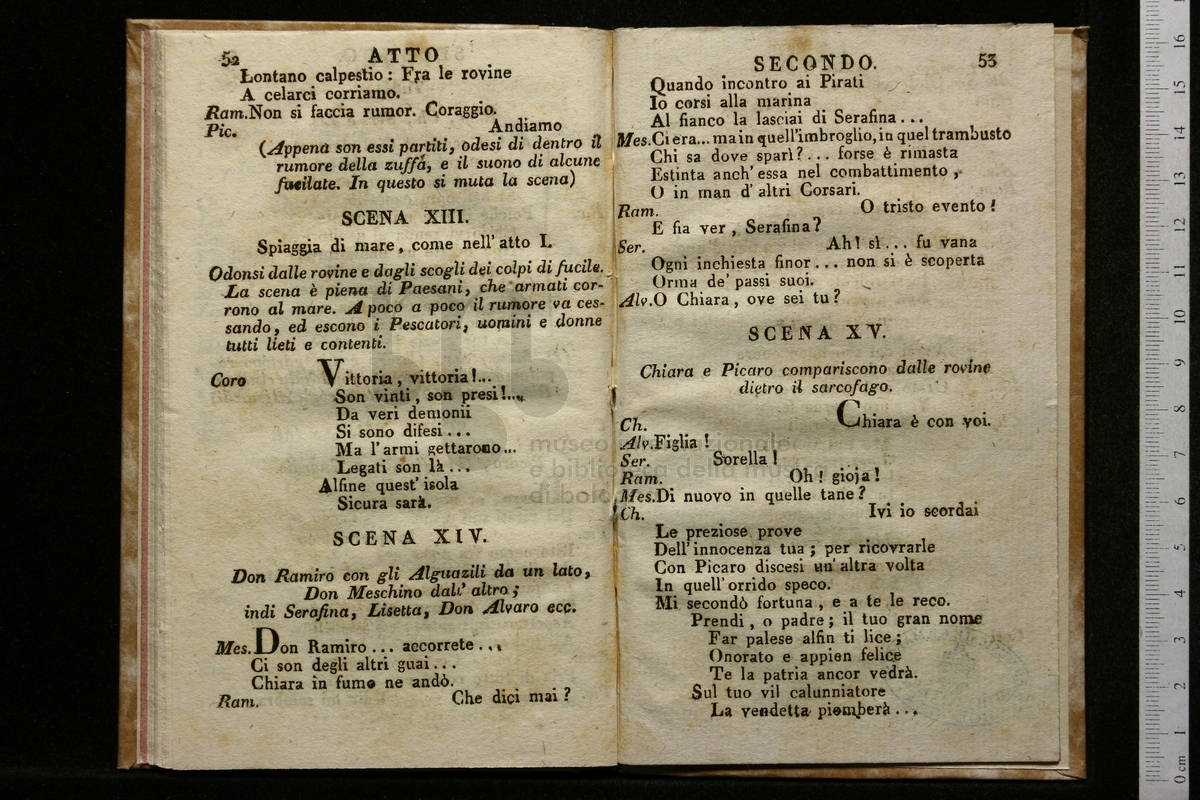 52 ATTO
Lontano calpestio: Fra le rovine
A celarci corriamo.
Ram. Non si faccia rumor. Coraggio.
Pic. Andiamo
(Appena son essi partiti, odesi di dentro il
rumore della zuffa, e il suono di alcune
fucilate. In questo si muta la scena)
SCENA XIII.
Spiaggia di mare, come nell' atto I.
Odonsi dalle rovine e dagli scogli dei colpi di fucile.
La scena è piena di Paesani, che armati cor-
rono al mare. A poco a poco il rumore va ces-
sando, ed escono i Pescatori, uomini e donne
tutti lieti e contenti.
Coro Vittoria, vittoria!...
Son vinti, son presi!...
Da veri demonii
Si sono difesi...
Ma l'armi gettarono...
Legati son là...
Alfine quest' isola
Sicura sarà.
SCENA XIV.
Don Ramiro con gli Alguazili da un lato,
Don Meschino dall' altro;
indi Serafina, Lisetta, Don Alvaro ecc.
Mes. Don Ramiro... accorrete...
Ci son degli altri guai...
Chiara in fumo ne andò.
Ram. Che dici mai?
SECONDO. 53
Quando incontro ai Pirati
Io corsi alla marina
Al fianco la lasciai di Serafina...
Mes. Ci era... ma in quell'imbroglio, in quel trambusto
Chi sa dove sparì?... forse è rimasta
Estinta anch' essa nel combattimento,
O in man d' altri Corsari.
Ram. O tristo evento!
E fia ver, Serafina?
Ser. Ah! sì... fu vana
Ogni inchiesta finor... non si è scoperta
Orma de' passi suoi.
Alv. O Chiara, ove sei tu?
SCENA XV.
Chiara e Picaro compariscono dalle rovine
dietro il sarcofago.
Ch. Chiara è con voi.
Alv. Figlia!
Ser. Sorella!
Ram. Oh! gioja!
Mes. Di nuovo in quelle tane?
Ch. Ivi io scordai
Le preziose prove
Dell' innocenza tua; per ricovrarle
Con Picaro discesi un' altra volta
In quell' orrido speco.
Mi secondò fortuna, e a te le reco.
Prendi, o padre; il tuo gran nome
Far palese alfin ti lice;
Onorato e appien felice
Te la patria ancor vedrà.
Sul tuo vil calunniatore
La vendetta piomberà...